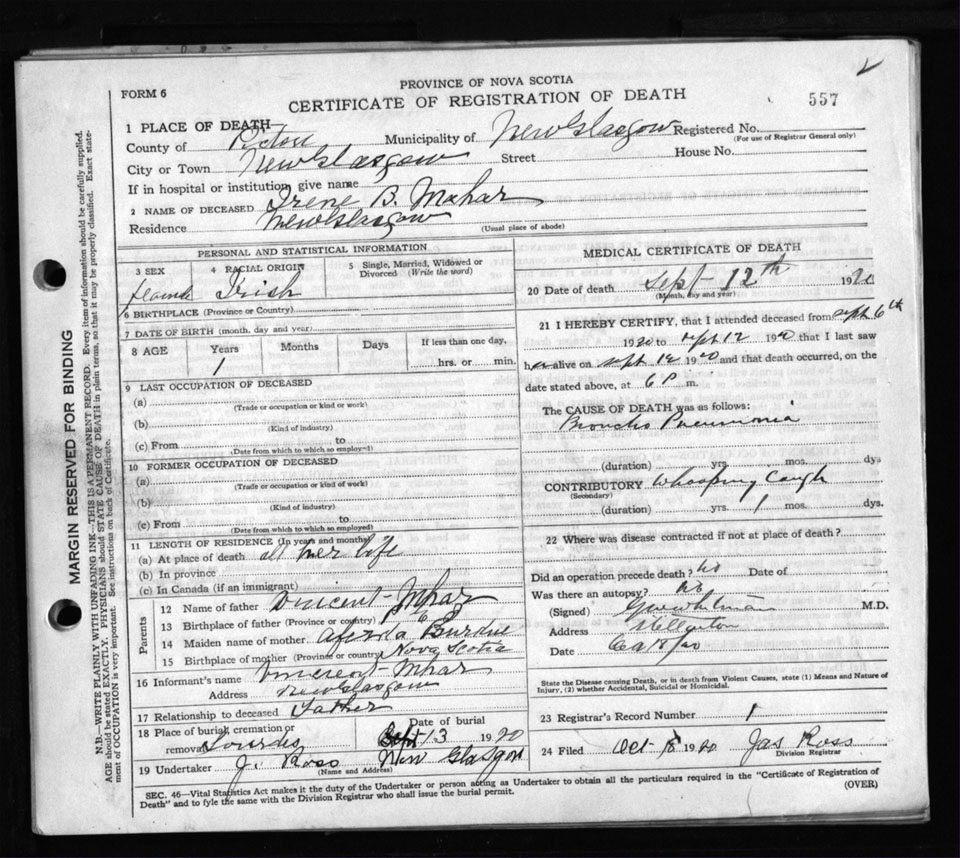 PROVINCE OF NOVA SCOTIA
FORM 6
CERTIFICATE OF REGISTRATION OF DEATH
557
1 PLACE OF DEATH
County of Pictou Municipality of New Glasgow Registered No.
(For use of Registrar General only)
City or Town New Glasgow Street House No.
If in hospital or institution, give name
2 NAME OF DECEASED Irene B. Mahar
Residence New Glasgow (Usual place of abode)
PERSONAL AND STATISTICAL INFORMATION
3 SEX 4 RACIAL ORIGIN 5 Single, Married, Widowed or Divorced (Write the word)
Irish
6 BIRTHPLACE (Province or Country)
7 DATE OF BIRTH (month, day and year)
8 AGE Years Months Days If less than one day,
1 hrs. or min.
9 LAST OCCUPATION OF DECEASED
(a)
(Trade or occupation or kind or work)
(b)
(Kind of industry)
(c) From to
(Date from which to which so employed)
10 FORMER OCCUPATION OF DECEASED
(a)
(Trade or occupation or kind of work)
(b)
(Kind of industry)
(c) From to
(Date from which to which so employed)
11 LENGTH OF RESIDENCE (In years and months)
(a) At place of death all her life
(b) In province
(c) In Canada (if an immigrant)
Parents
12 Name of father Vincent Mhar
13 Birthplace of father (Province or country)
14 Maiden name of mother
15 Birthplace of mother (Province or country) Nova Scotia
16 Informant's name Vincent Mhar
Address New Glasgow
17 Relationship to deceased Father
18 Place of burial, cremation or removal Lourdes Date of burial Sept 13 1920
19 Undertaker J. Ross New Glasgow
(Name and Address)
MEDICAL CERTIFICATE OF DEATH
20 Date of death Sept 12th 1920
(Month, day and year)
21 I HEREBY CERTIFY, that I attended deceased from Sept 6th
1920 to Sept 12 1920 that I last saw
h er alive on Sept 12 1920 and that death occurred, on the
date stated above, at 6 P m.
The CAUSE OF DEATH was as follows:
Broncho Pneumonia
(duration) yrs. mos. dys
CONTRIBUTORY Whooping Cough
(Secondary)
(duration) yrs. 1 mos. dys.
22 Where was disease contracted if not at place of death?
Did an operation precede death? no Date of
Was there an autopsy? no
(Signed) M.D.
Address Stellarton
Date
State the Disease causing Death, or in death from Violent Causes, state (1) Means and Nature of Injury, (2) whether Accidental, Suicidal or Homicidal.
23 Registrar's Record Number 1
24 Filed Oct 8 1920 Jas Ross
Division Registrar
SEC. 46—Vital Statistics Act makes it the duty of the Undertaker or person acting as Undertaker to obtain all the particulars required in the "Certificate of Registration of
Death" and to fyle the same with the Division Registrar who shall issue the burial permit. (OVER)
MARGIN RESERVED FOR BINDING
N.B.—WRITE PLAINLY WITH UNFADING INK—THIS IS A PERMANENT RECORD. Every item of information should be carefully supplied.
AGE should be stated EXACTLY. PHYSICIANS should STATE CAUSE OF DEATH in plain terms, so that it may be properly classified. Exact statement of OCCUPATION is very important. See instructions on back of Certificate.